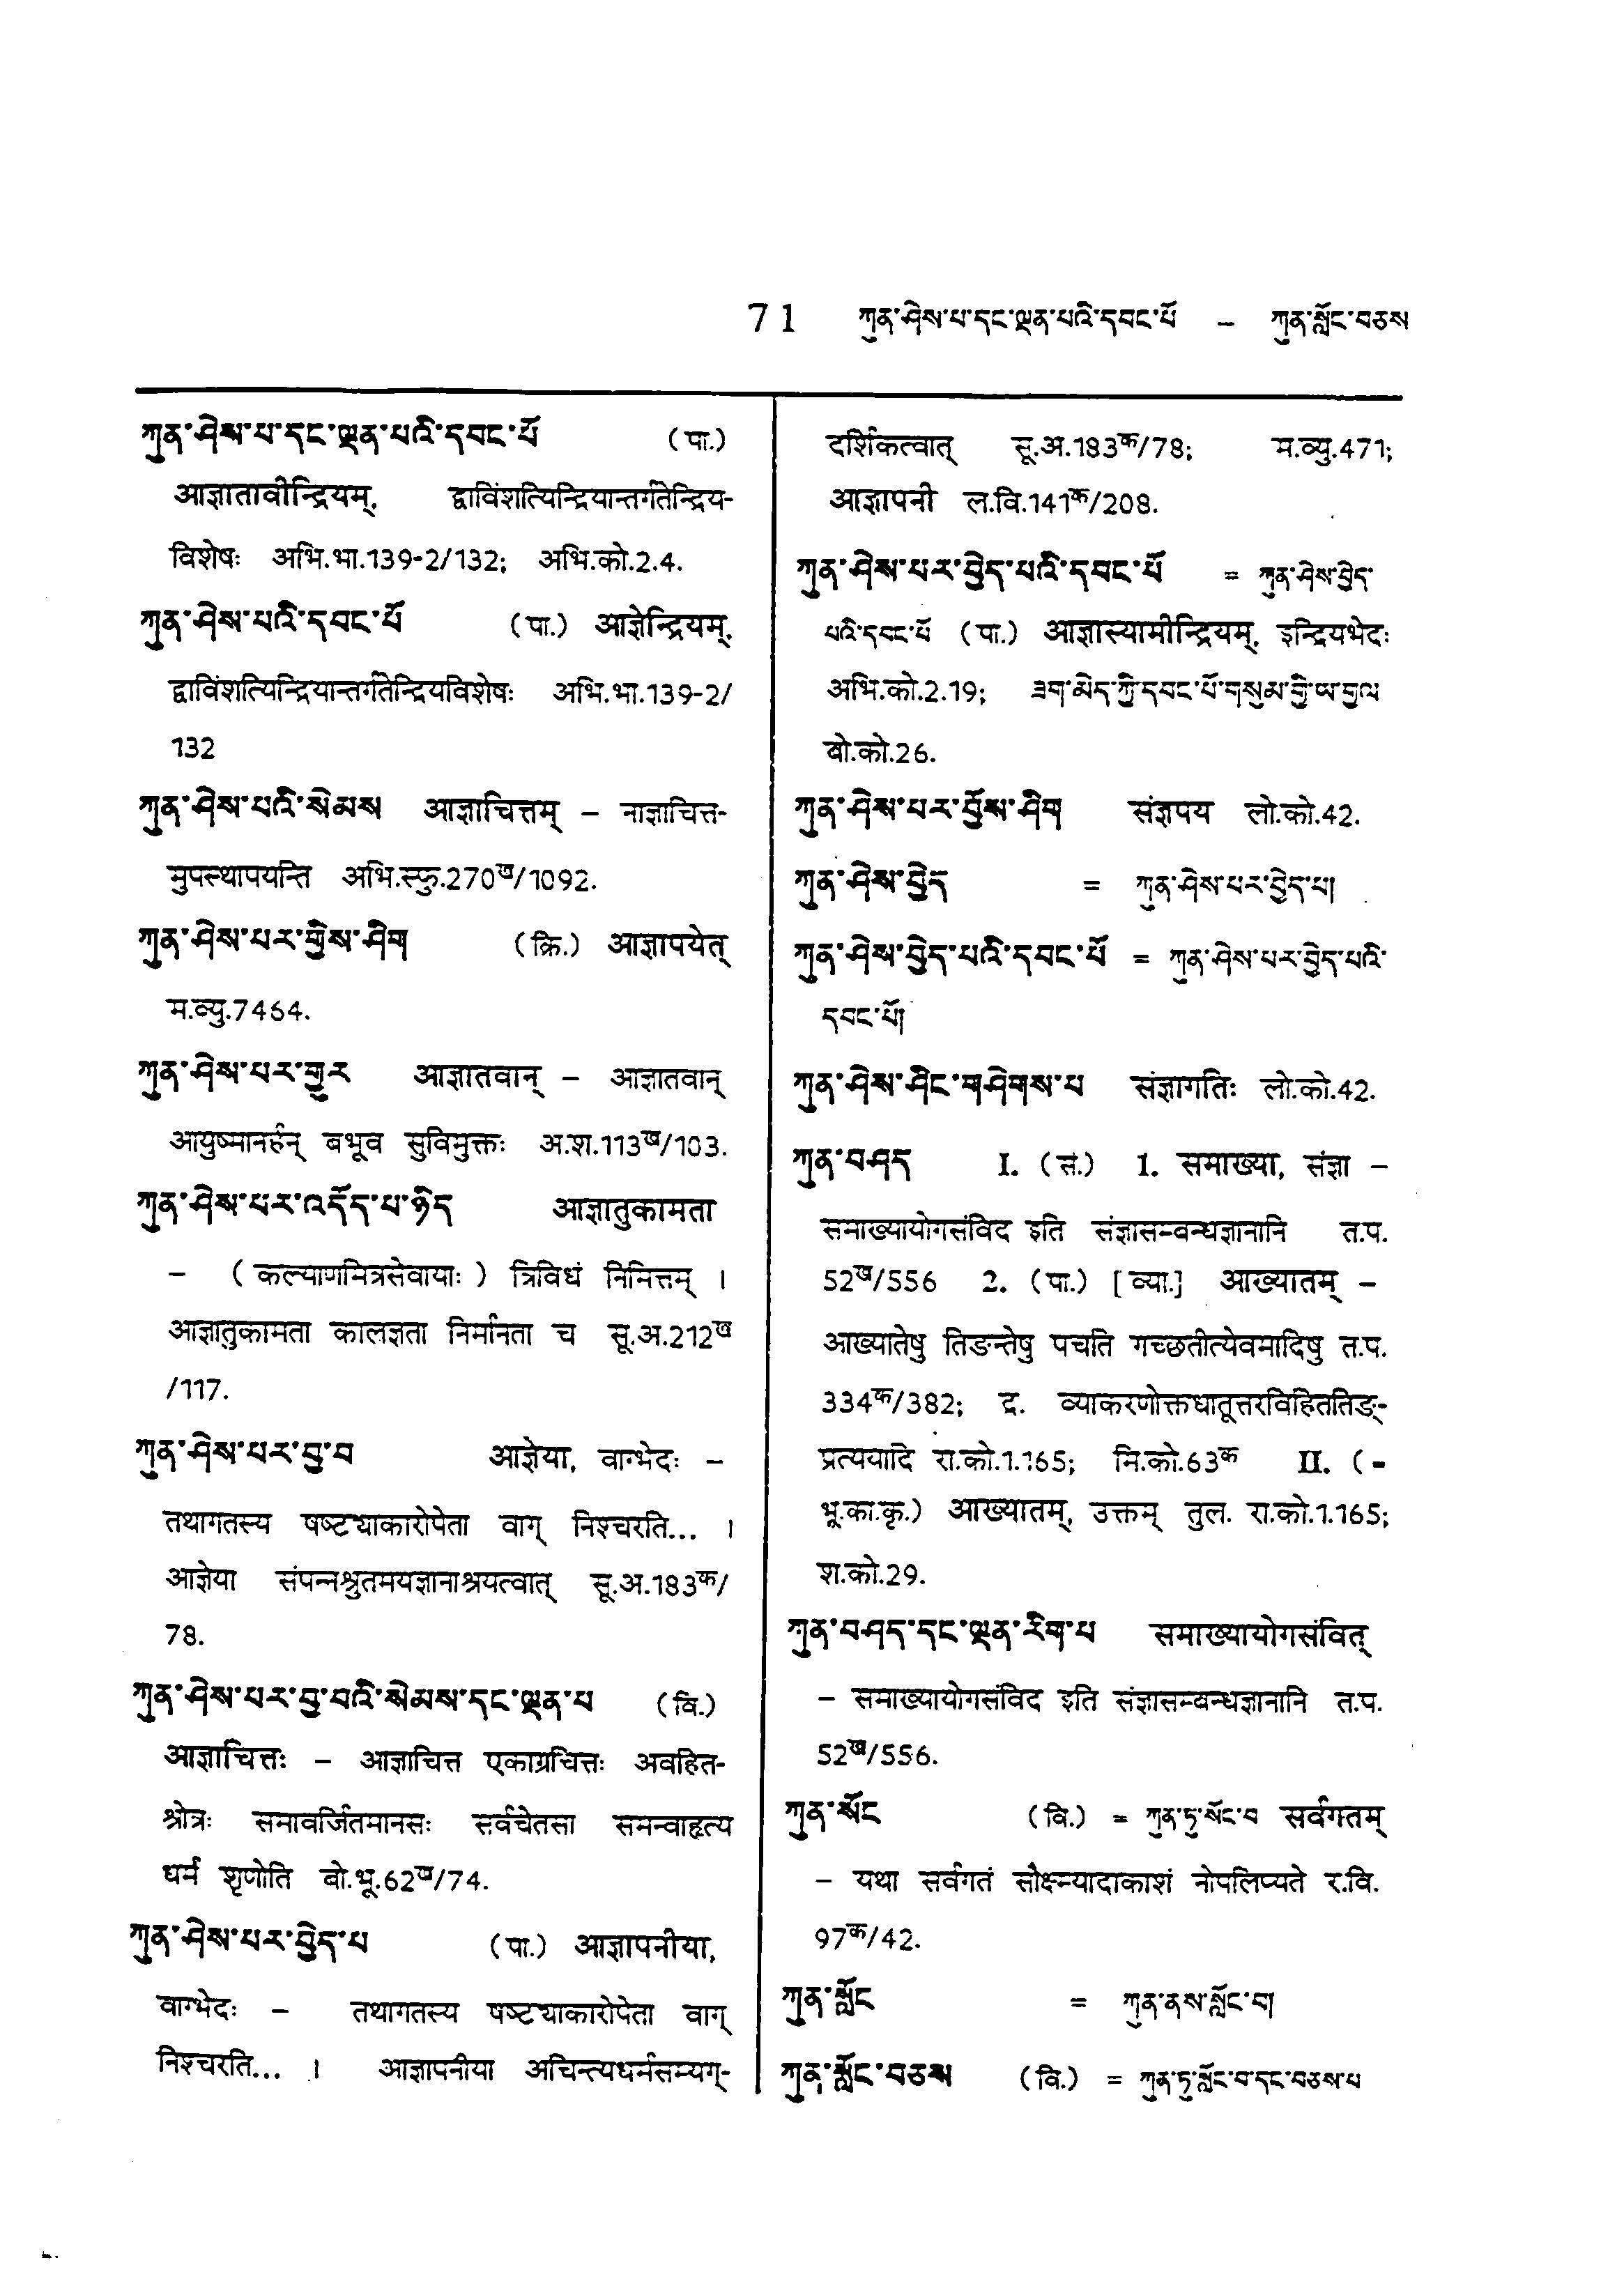 71 ཀུན་ཤེས་པ་དང་ལྡན་པའི་དབང་པོ – ཀུན་སློང་བཅས
ཀུན་ཤེས་པ་དང་ལྡན་པའི་དབང་པོ (पा.)
आज्ञातावीन्द्रियम्, द्वाविंशत्यिन्द्रियान्तर्गतेन्द्रिय-
विशेषः अभि.भा.139-2/132; अभि.को.2.4.
ཀུན་ཤེས་པའི་དབང་པོ (पा.) आज्ञेन्द्रियम्,
द्वाविंशत्यिन्द्रियान्तर्गतेन्द्रियविशेषः अभि.भा.139-2/
132
ཀུན་ཤེས་པའི་སེམས आज्ञाचित्तम् – नाज्ञाचित्त-
मुपस्थापयन्ति अभि.स्फु.270ख/1092.
ཀུན་ཤེས་པར་གྱིས་ཤིག (क्रि.) आज्ञापयेत्
म.व्यु.7464.
ཀུན་ཤེས་པར་གྱུར आज्ञातवान् – आज्ञातवान्
आयुष्मानर्हन् बभूव सुविमुक्तः अ.श.113ख/103.
ཀུན་ཤེས་པར་འདོད་པ་ཉིད आज्ञातुकामता
– (कल्याणमित्रसेवायाः) त्रिविधं निमित्तम् ।
आज्ञातुकामता कालज्ञता निर्मानता च सू.अ.212ख
/117.
ཀུན་ཤེས་པར་བྱ་བ आज्ञेया, वाग्भेदः –
तथागतस्य षष्ट्याकारोपेता वाग् निश्चरति... ।
आज्ञेया संपन्नश्रुतमयज्ञानाश्रयत्वात् सू.अ.183क/
78.
ཀུན་ཤེས་པར་བྱ་བའི་སེམས་དང་ལྡན་པ (वि.)
आज्ञाचित्तः – आज्ञाचित्त एकाग्रचित्तः अवहित-
श्रोत्रः समावर्जितमानसः सर्वचेतसा समन्वाहृत्य
धर्मं शृणोति बो.भू.62ख/74.
ཀུན་ཤེས་པར་བྱེད་པ (पा.) आज्ञापनीया,
वाग्भेदः – तथागतस्य षष्ट्याकारोपेता वाग्
निश्चरति... । आज्ञापनीया अचिन्त्यधर्मसम्यग्-
दर्शिकत्वात् सू.अ.183क/78; म.व्यु.471;
आज्ञापनी ल.वि.141क/208.
ཀུན་ཤེས་པར་བྱེད་པའི་དབང་པོ = ཀུན་ཤེས་བྱེད་
པའི་དབང་པོ (पा.) आज्ञास्यामीन्द्रियम्, इन्द्रियभेदः
अभि.को.2.19; ཟག་མེད་ཀྱི་དབང་པོ་གསུམ་གྱི་ཡ་གྱལ
बो.को.26.
ཀུན་ཤེས་པར་བྱོས་ཤིག संज्ञपय लो.को.42.
ཀུན་ཤེས་བྱེད = ཀུན་ཤེས་པར་བྱེད་པ།
ཀུན་ཤེས་བྱེད་པའི་དབང་པོ = ཀུན་ཤེས་པར་བྱེད་པའི་
དབང་པོ།
ཀུན་ཤེས་ཤིང་གཤེགས་པ संज्ञागतिः लो.को.42.
ཀུན་བཤད I. (सं.) 1. समाख्या, संज्ञा –
समाख्यायोगसंविद इति संज्ञासम्बन्धज्ञानानि त.प.
52ख/556 2. (पा.) [व्या.] आख्यातम् –
आख्यातेषु तिङन्तेषु पचति गच्छतीत्येवमादिषु त.प.
334क/382; द्र. व्याकरणोक्तधातूत्तरविहिततिङ्-
प्रत्ययादि रा.को.1.165; मि.को.63क II. (-
भू.का.कृ.) आख्यातम्, उक्तम् तुल. रा.को.1.165;
श.को.29.
ཀུན་བཤད་དང་ལྡན་རིག་པ समाख्यायोगसंवित्
– समाख्यायोगसंविद इति संज्ञासम्बन्धज्ञानानि त.प.
52ख/556.
ཀུན་སོང (वि.) = ཀུན་ཏུ་སོང་བ सर्वगतम्
– यथा सर्वगतं सौक्ष्म्यादाकाशं नोपलिप्यते र.वि.
97क/42.
ཀུན་སློང = ཀུན་ནས་སློང་བ།
ཀུན་སློང་བཅས (वि.) = ཀུན་ཏུ་སློང་བ་དང་བཅས་པ